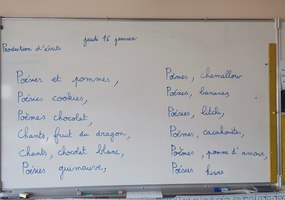 jeudi 16 janvier
Production d'écrits
Poésies et pommes,
Poésies cookies,
Poèmes chocolat,
Chants, fruit du dragon,
Chants, chocolat blanc,
Poésies guimauve,
Poèmes, chamallow
Poésies, bananes,
Poésies, litchi,
Poèmes, cacahuète,
Poèmes, pomme d'amour,
Poésies kiwi